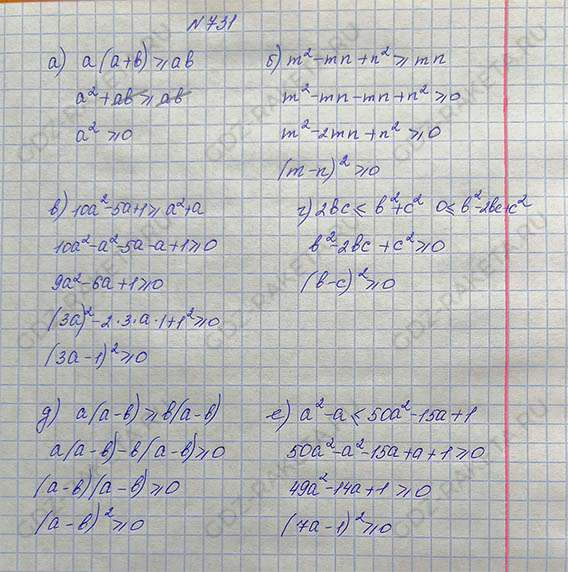 №731
а) a(a+в)≥aв
a²+aв≥aв
a²≥0
б) m²-mn+n²≥mn
m²-mn-mn+n²≥0
m²-2mn+n²≥0
(m-n)²≥0
в) 10a²-5a+1≥a²+a
10a²-a²-5a-a+1≥0
9a²-6a+1≥0
(3a)²-2·3·a·1+1²≥0
(3a-1)²≥0
г) 2вc≤в²+c² 0≤в²-2вc+c²
в²-2вc+c²≥0
(в-c)²≥0
д) a(a-в)≥в(a-в)
a(a-в)-в(a-в)≥0
(a-в)(a-в)≥0
(a-в)²≥0
е) a²-a≤50a²-15a+1
50a²-a²-15a+a+1≥0
49a²-14a+1≥0
(7a-1)²≥0
GDZ-RAKETA.RU